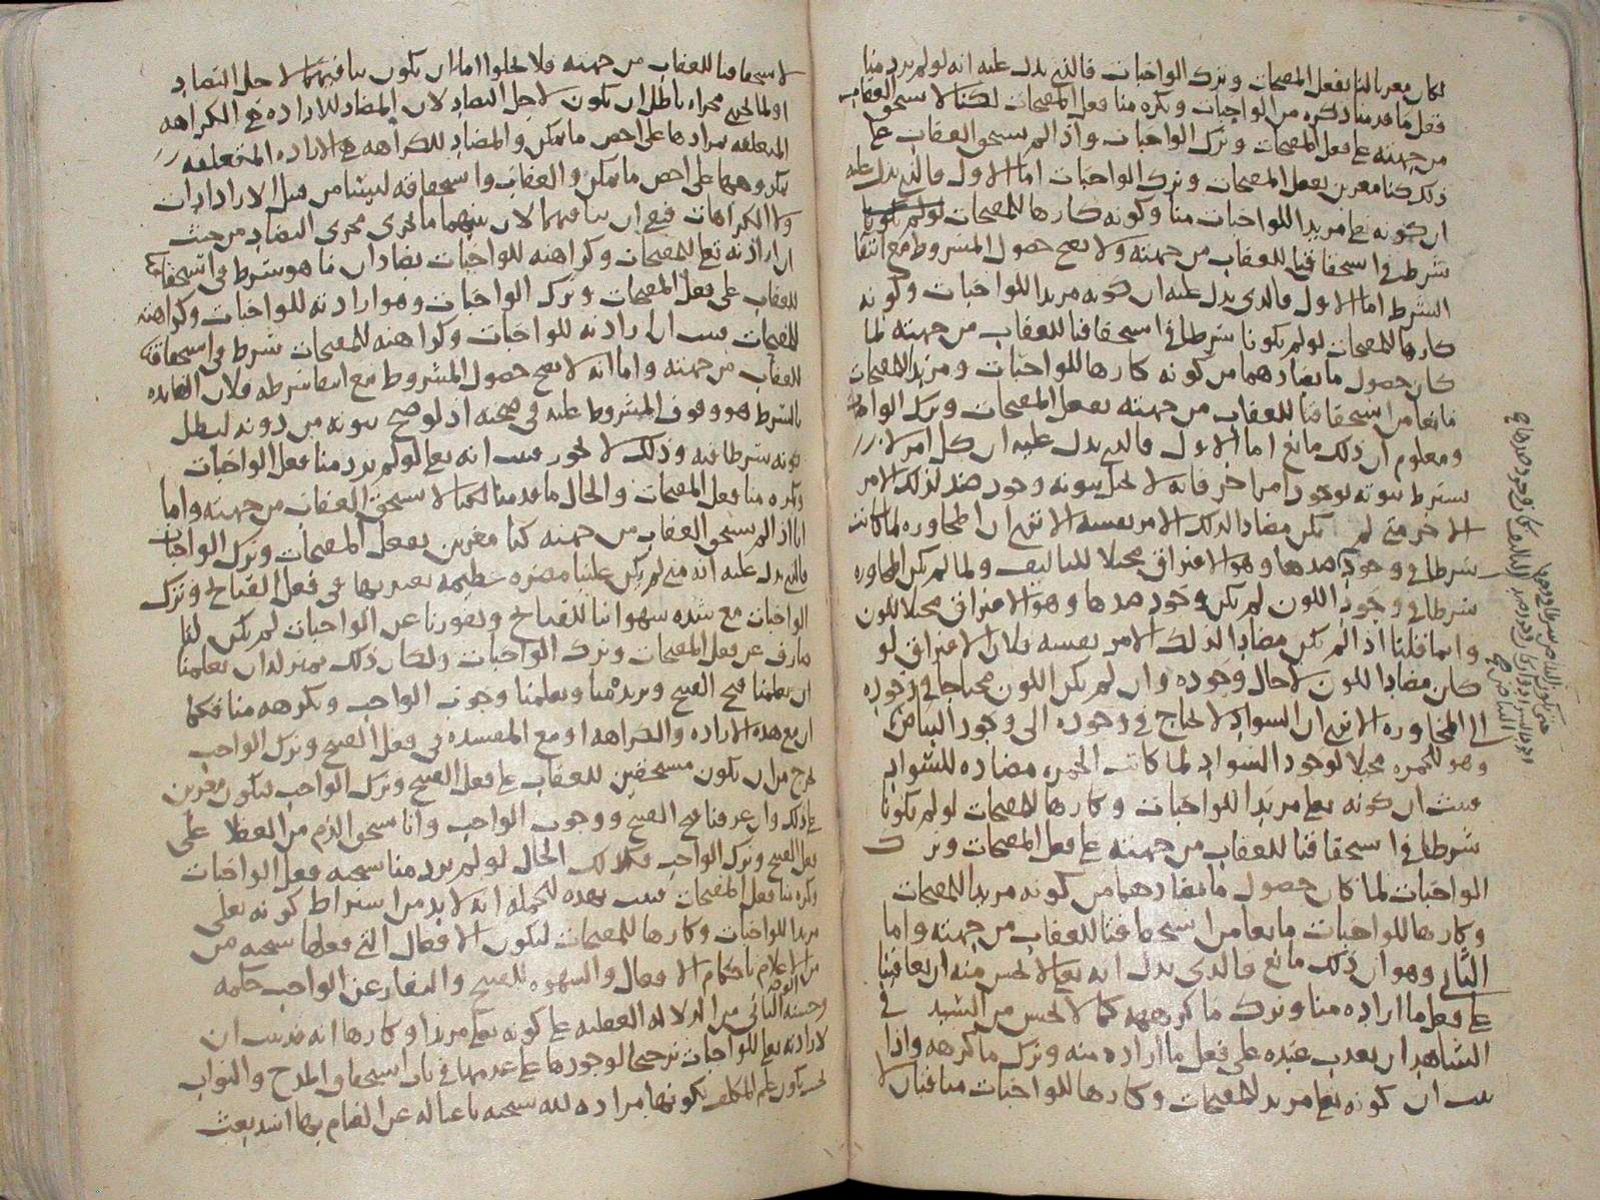 لكان مغريا لنا بفعل المقبحات وترك الواجبات فالذي يدل عليه انه لو لم يرد منا
فعل ما قدمنا ذكره من الواجبات ويكره منا فعل المقبحات لكنا لا نستحق العقاب
من جهته على فعل المقبحات وترك الواجبات واذا لم نستحق العقاب على
ذلك كنا مغرين بفعل المقبحات وترك الواجبات اما الاول فالذي يدل عليه
ان كونه تعالى مريدا للواجبات منا وكونه كارها للمقبحات
شرط في استحقاقنا للعقاب من جهته ولا يصح حصول المشروط مع انتفا
الشرط اما الاول فالذي يدل عليه ان كونه مريدا للواجبات وكونه
كارها للمقبحات لو لم يكونا شرطا في استحقاقنا للعقاب من جهته لما
كان حصول ما يضادهما من كونه كارها للواجبات ومريدا للمقبحات
مانعا من استحقاقنا للعقاب من جهته بفعل المقبحات وترك الواجبات
ومعلوم ان ذلك مانع اما الاول فالذي يدل عليه ان كل امر لا
يشترط ثبوته بوجود امر اخر فانه لا يحيل ثبوته وجود ضد لذلك الامر
الاخر متى لم يكن مضادا لذلك الامر بنفسه الا ترى ان المجاورة لما كانت
شرطا في وجود ضدها وهو الافتراق محيلا للتاليف ولما لم يكن المجاورة
شرطا في وجود اللون لم يكن وجود ضدها وهو الافتراق محيلا للون
وانما قلنا اذا لم يكن مضادا لذلك الامر بنفسه فلان الافتراق لو
كان مضادا للون لاحال وجوده وان لم يكن اللون محتاجا في وجوده
الى المجاورة الا ترى ان السواد لا يحتاج في وجوده الى وجود البياض
وهو للحمرة محيلا لوجود السواد لما كانت الحمرة مضادة للسواد
فثبت ان كونه تعالى مريدا للواجبات وكارها للمقبحات لو لم يكونا
شرطا في استحقاقنا للعقاب من جهته على فعل المقبحات وترك
الواجبات لما كان حصول ما يضادهما من كونه مريدا للمقبحات
وكارها للواجبات مانعا من استحقاقنا للعقاب من جهته واما
الثاني وهو ان ذلك مانع فالذي يدل انه تعالى لا يحسن منه ان يعاقبنا
على فعل ما اراده منا وترك ما كرهه كما لا يحسن من السيد في
الشاهد ان يعذب عبده على فعل ما اراده منه وترك ما كرهه واذا
ثبت ان كونه تعالى مريدا للمقبحات وكارها للواجبات منافيان لا
لاستحقاقنا للعقاب من جهته فلا يخلوا اما ان يكون ينافيهما لاجل التضاد
او لما يجري مجراه باطل ان يكون لاجل التضاد لان المضاد للارادة هي الكراهة
المتعلقة بمرادها على اخص ما يمكن والمضاد للكراهة هي الارادة المتعلقة
بمكروهها على اخص ما يمكن والعقاب واستحقاقه ليسا من قبل الارادات
ولا الكراهات فيجب ان ينافيهما لان بينهما ما يجري مجرى التضاد من حيث
ان ارادته تعالى للمقبحات وكراهته للواجبات يضادان ما هو شرط في استحقاقنا
للعقاب على فعل المقبحات وترك الواجبات وهو ارادته للواجبات وكراهته
للمقبحات فثبت ان ارادته للواجبات وكراهته للمقبحات شرط في استحقاقنا
للعقاب من جهته واما انه لا يصح حصول المشروط مع انتفا شرطه فلان الفائدة
بالشرط هو وقوف المشروط عليه في صحته اذ لو صح ثبوته من دونه لبطل
كونه شرطا فيه وذلك لا يجوز فثبت انه تعالى لو لم يرد منا فعل الواجبات
ويكره منا فعل المقبحات والحال ما قدمنا لكنا لا نستحق العقاب من جهته واما
انا اذا لم نستحق العقاب من جهته كنا مغرين بفعل المقبحات وترك الواجبات
فالذي يدل عليه انه متى لم يكن علينا مضرة عظيمة نعتد بها في فعل القبائح وترك
الواجبات مع شدة شهواتنا للقبائح ونفورنا عن الواجبات لم يكن لنا
صارف عن فعل المقبحات وترك الواجبات ولكان ذلك بمنزلة ان يعلمنا
ان يعلمنا قبح القبيح ويريده منا ويعلمنا وجوب الواجب ويكرهه منا فكما
ان مع هذه الارادة والكراهة او مع المفسدة في فعل القبيح وترك الواجب
نخرج من ان نكون مستحقين للعقاب على فعل القبيح وترك الواجب فنكون مغرين
على ذلك وان عرفنا قبح القبيح ووجوب الواجب وانا نستحق الذم من العقلا على
فعل القبيح وترك الواجب فكذلك الحال لو لم يرد منا سبحنه فعل الواجبات
ويكره منا فعل المقبحات فثبت بهذه الجملة انه لا بد من اشتراط كونه تعالى
مريدا للواجبات وكارها للمقبحات لتكون الافعال التي فعلها سبحنه من
من الاعلام باحكام الافعال والشهوة للقبيح والنفار عن الواجب حكمة
وحسنة الوجه الثاني من الدلالة العقلية على كونه تعالى مريدا وكارها انه قد ثبت ان
لارادته تعالى للواجبات ترجيحا لوجودها على عدمها في باب استحقاق المدح والثواب